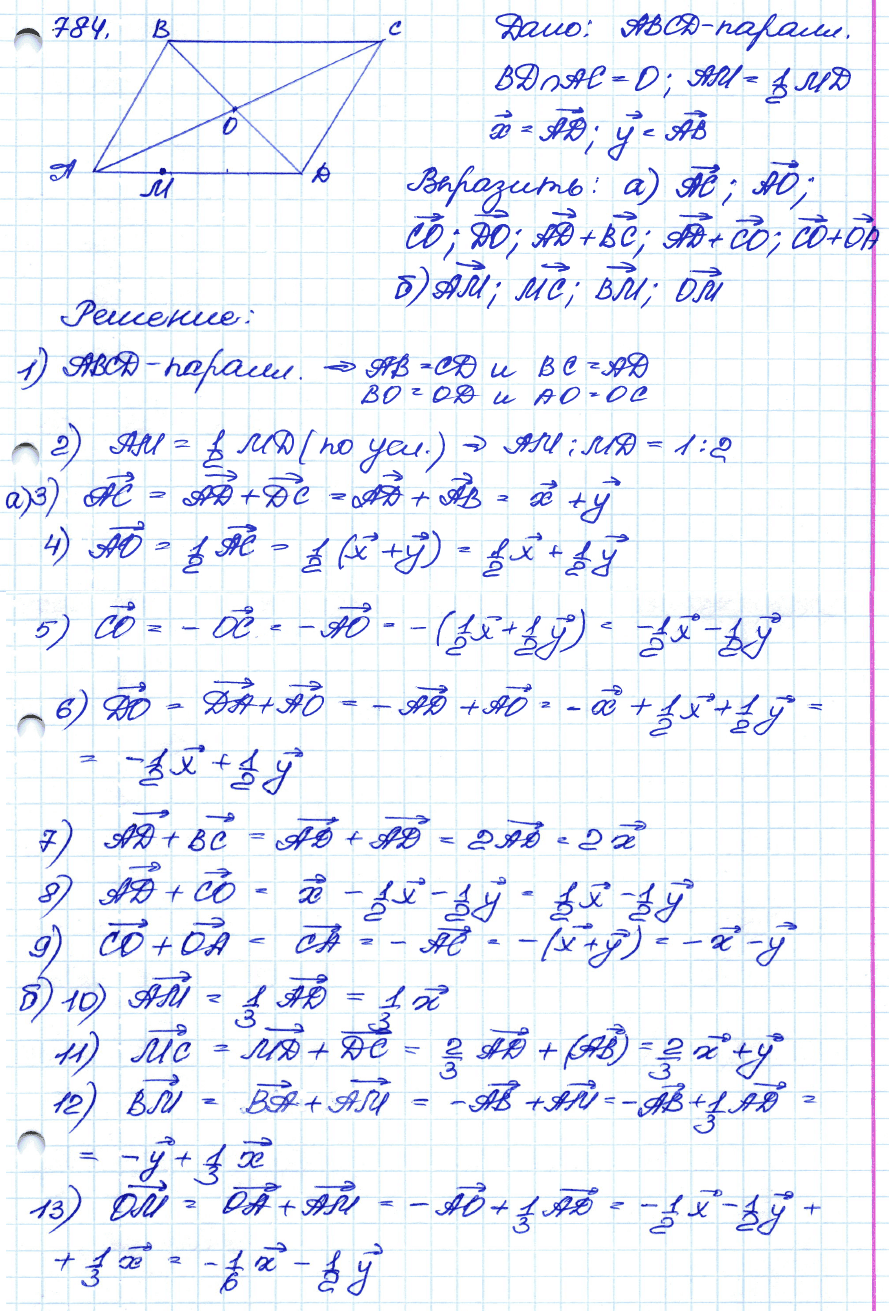 784.
B
C
O
A
M
D
Дано: ABCD-парал.
BD∩AC = O; AM = 1/2 MD
x⃗ = AD⃗; y⃗ = AB⃗
Выразить: а) AC⃗; AO⃗;
CO⃗; DO⃗; AD⃗ + BC⃗; AD⃗ + CO⃗; CO⃗ + OA⃗
б) AM⃗; MC⃗; BM⃗; OM⃗
Решение:
1) ABCD-парал. ⇒ AB = CD и BC = AD
BO = OD и AO = OC
2) AM = 1/2 MD (по усл.) ⇒ AM : MD = 1:2
а) 3) AC⃗ = AD⃗ + DC⃗ = AD⃗ + AB⃗ = x⃗ + y⃗
4) AO⃗ = 1/2 AC⃗ = 1/2 (x⃗ + y⃗) = 1/2 x⃗ + 1/2 y⃗
5) CO⃗ = - OC⃗ = - AO⃗ = -(1/2 x⃗ + 1/2 y⃗) = -1/2 x⃗ - 1/2 y⃗
6) DO⃗ = DA⃗ + AO⃗ = - AD⃗ + AO⃗ = - x⃗ + 1/2 x⃗ + 1/2 y⃗ =
= -1/2 x⃗ + 1/2 y⃗
7) AD⃗ + BC⃗ = AD⃗ + AD⃗ = 2AD⃗ = 2x⃗
8) AD⃗ + CO⃗ = x⃗ - 1/2 x⃗ - 1/2 y⃗ = 1/2 x⃗ - 1/2 y⃗
9) CO⃗ + OA⃗ = CA⃗ = - AC⃗ = -(x⃗ + y⃗) = - x⃗ - y⃗
б) 10) AM⃗ = 1/3 AD⃗ = 1/3 x⃗
11) MC⃗ = MD⃗ + DC⃗ = 2/3 AD⃗ + (AB⃗) = 2/3 x⃗ + y⃗
12) BM⃗ = BA⃗ + AM⃗ = - AB⃗ + AM⃗ = - AB⃗ + 1/3 AD⃗ =
= - y⃗ + 1/3 x⃗
13) OM⃗ = OA⃗ + AM⃗ = - AO⃗ + 1/3 AD⃗ = -1/2 x⃗ - 1/2 y⃗ +
+ 1/3 x⃗ = -1/6 x⃗ - 1/2 y⃗